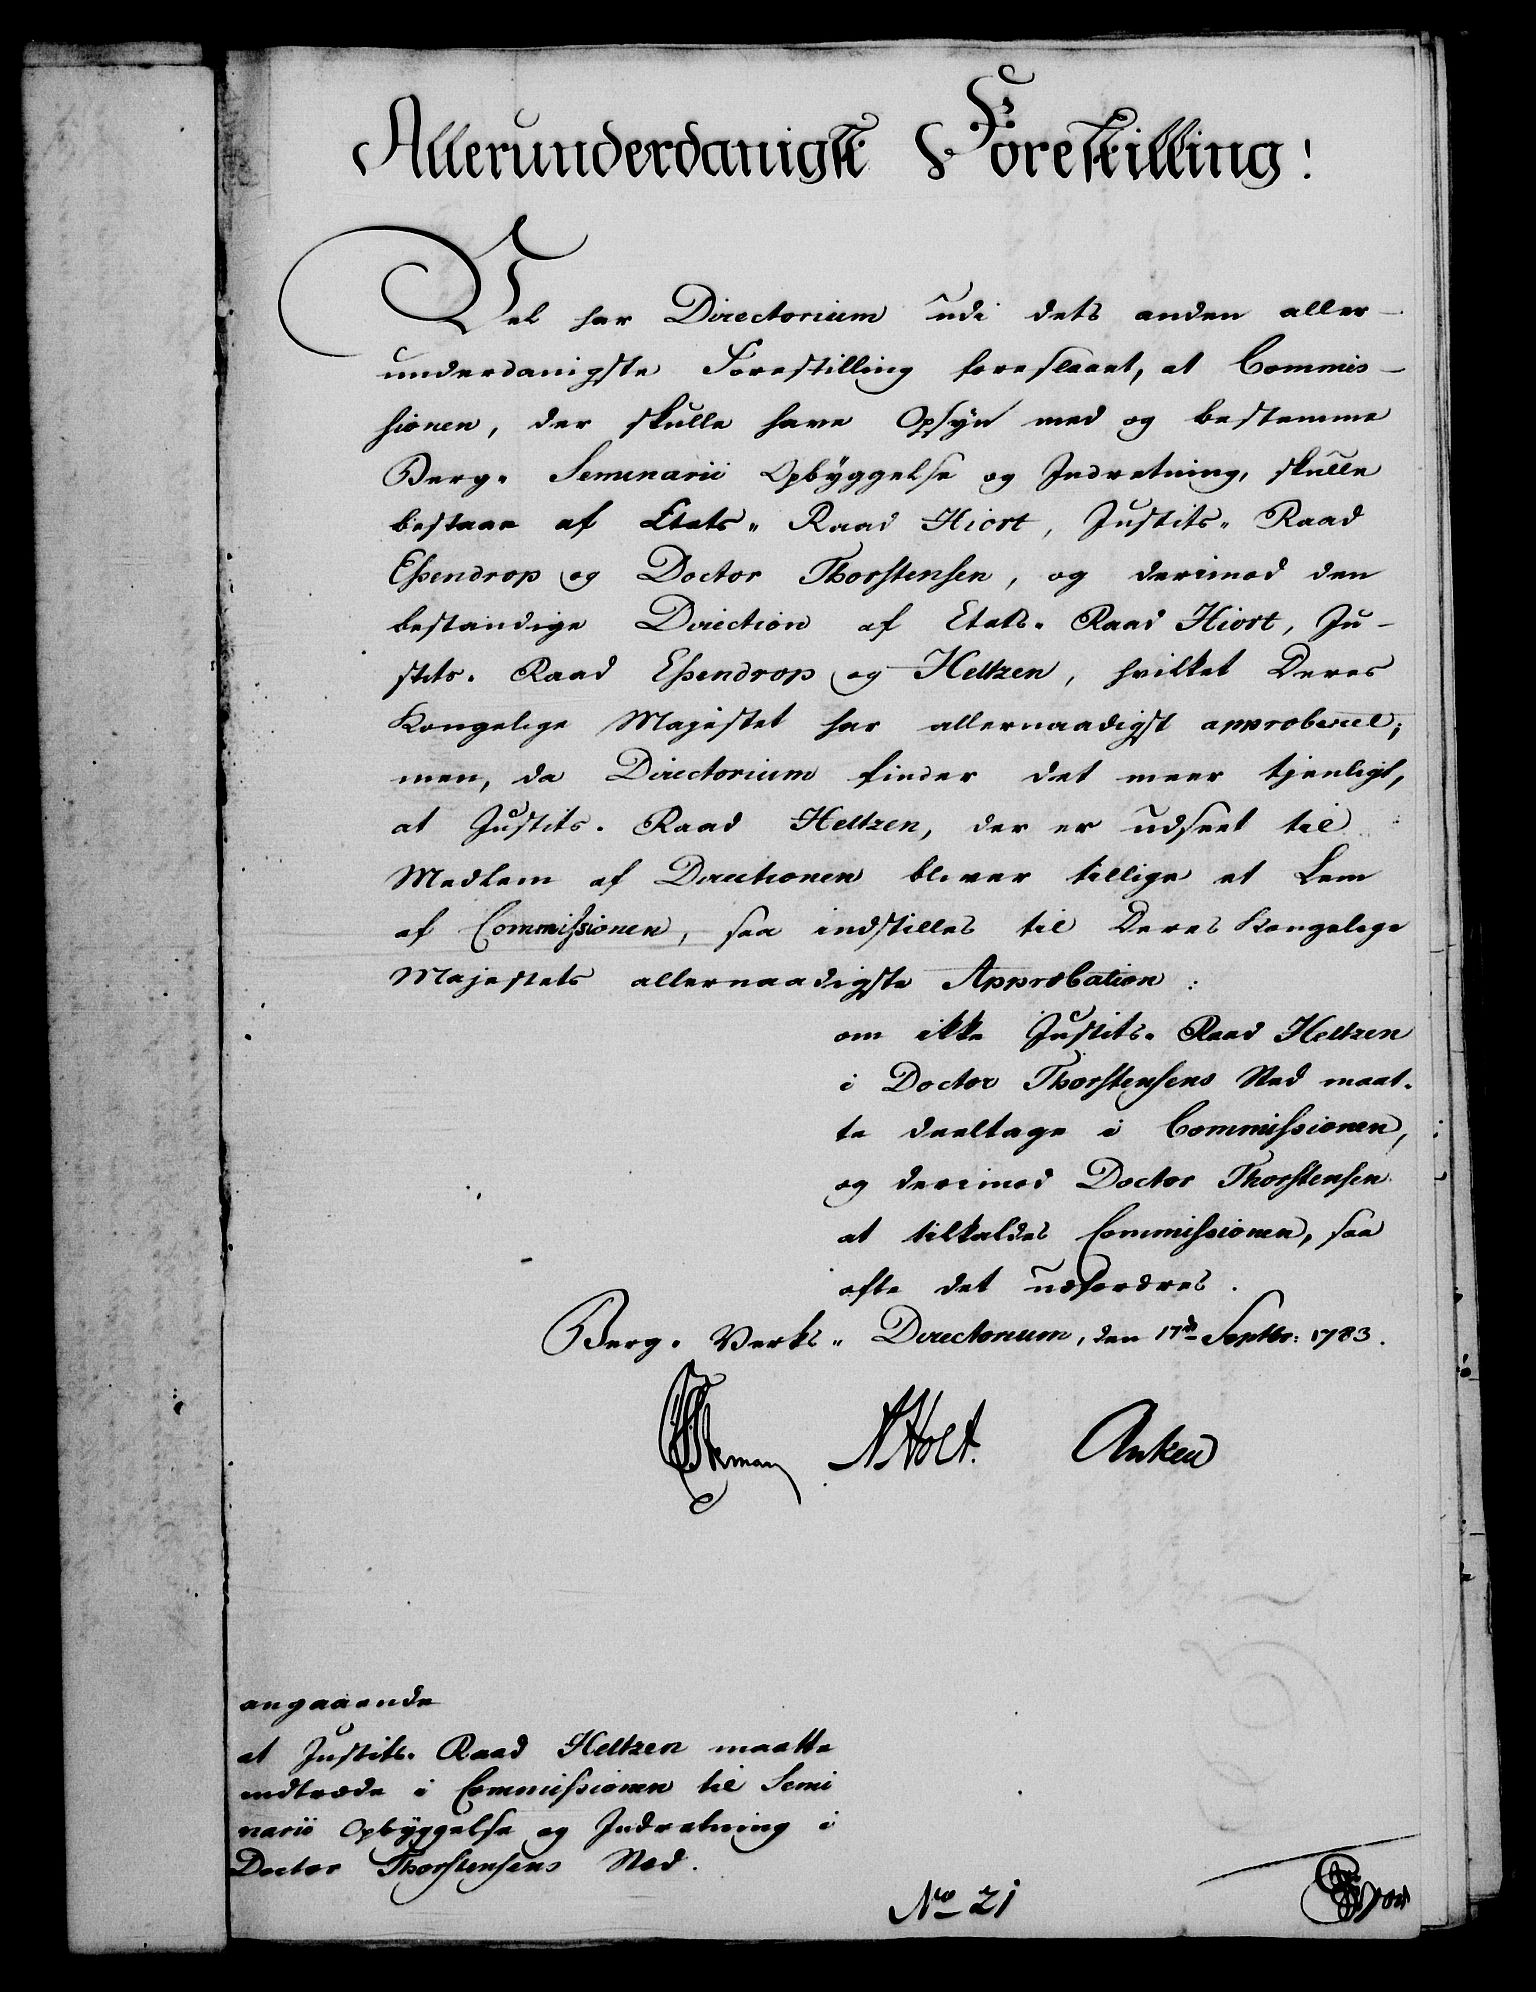 Allerunderdanigst Forestilling!
Vel har Directorium udi dets anden aller-
underdanigste Forestilling foreslaaet, at Commis-
sionen, der skulle have Opsyn med og bestemme
Berg- Seminarii Opbyggelse og Indretning, skulle
bestaae af Etats- Raad Hiort, Justits- Raad
Essendrop og Doctor Thorstensen, og derimod den
bestandige Direction af Etats- Raad Hiort, Ju-
stits- Raad Essendrop og Heltzen, hvilket Deres
Kongelige Majestet har allernaadigst approberet;
men, da Directorium finder det meer tjenligt,
at Justits- Raad Heltzen, der er udseet til
Medlem af Directionen bliver tillige et Lem
af Commissionen, saa indstilles til Deres Kongelige
Majestets allernaadigste Approbation:
om ikke Justits- Raad Heltzen
i Doctor Thorstensens Sted maat-
te deeltage i Commissionen,
og derimod Doctor Thorstensen
at tilkaldes Commissionen, saa
ofte det udfordres.
Berg- Verks- Directorium, den 17de Septbr: 1783.
Stemann Holt. Anker
angaaende
at Justits- Raad Heltzen maatte
indtræde i Commissionen til Semi
narii Opbyggelse og Indretning i
Doctor Thorstensens Sted.
No 21